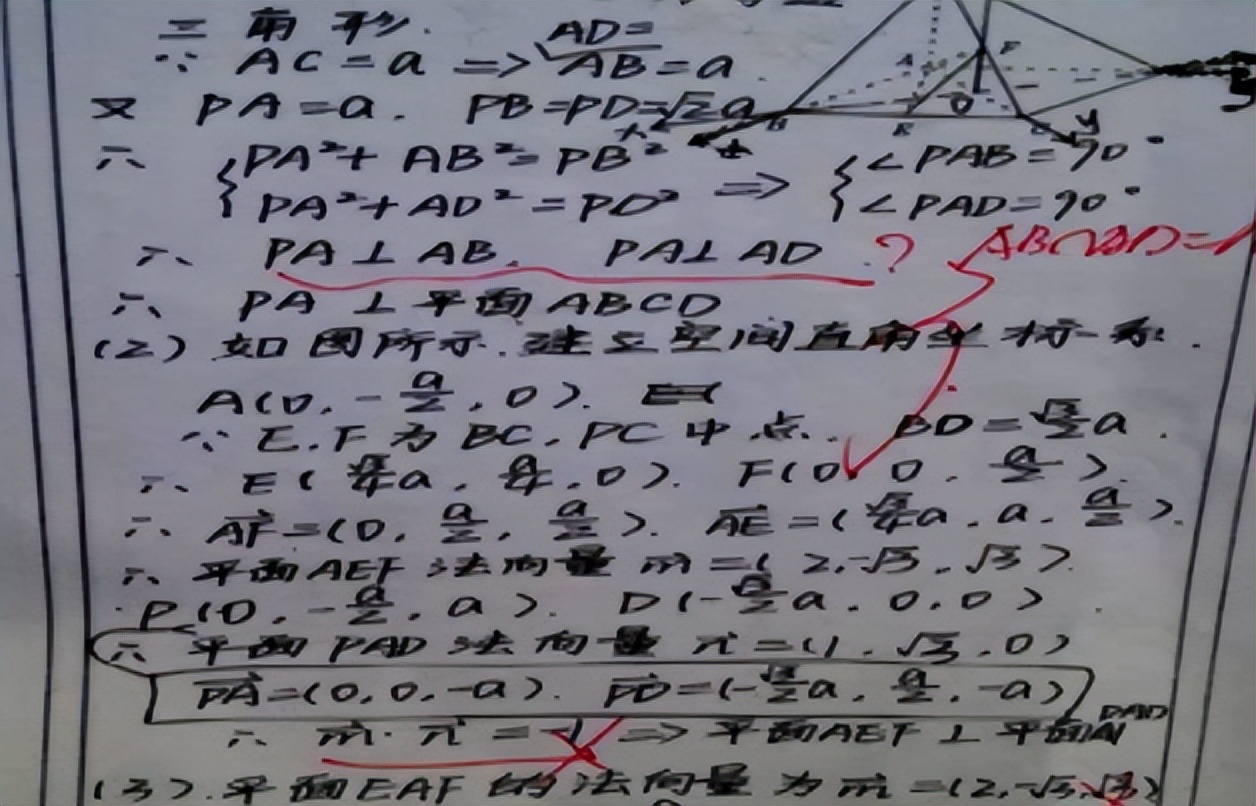 三角形.
AD=
∵ AC=a ⇒ AB=a.
又 PA=a. PB=PD=√2a
∴ {PA²+AB²=PB² ⇒ {∠PAB=90°
{PA²+AD²=PD² {∠PAD=90°
∴ PA⊥AB. PA⊥AD ? AB∩AD=
∴ PA⊥平面ABCD
(2) 如图所示.建立空间直角坐标系.
A(0,-a/2,0).
∵ E.F为BC,PC中点. BD=√3/2a.
∴ E(√3/4a,a/4,0). F(0,0,a/2).
∴ AF=(0,a/2,a/2). AE=(√3/4a,a,a/2).
∴ 平面AEF法向量m=(2,-√3,√3).
P(0,-a/2,a). D(-√3/2a,0,0).
∴ 平面PAD法向量n=(1,√3,0)
PA=(0,0,-a). PD=(-√3/2a,a/2,-a)
∴ m·n=-1 ⇒ 平面AEF⊥平面PAD
(3).平面EAF的法向量为m=(2,-√3,√3)